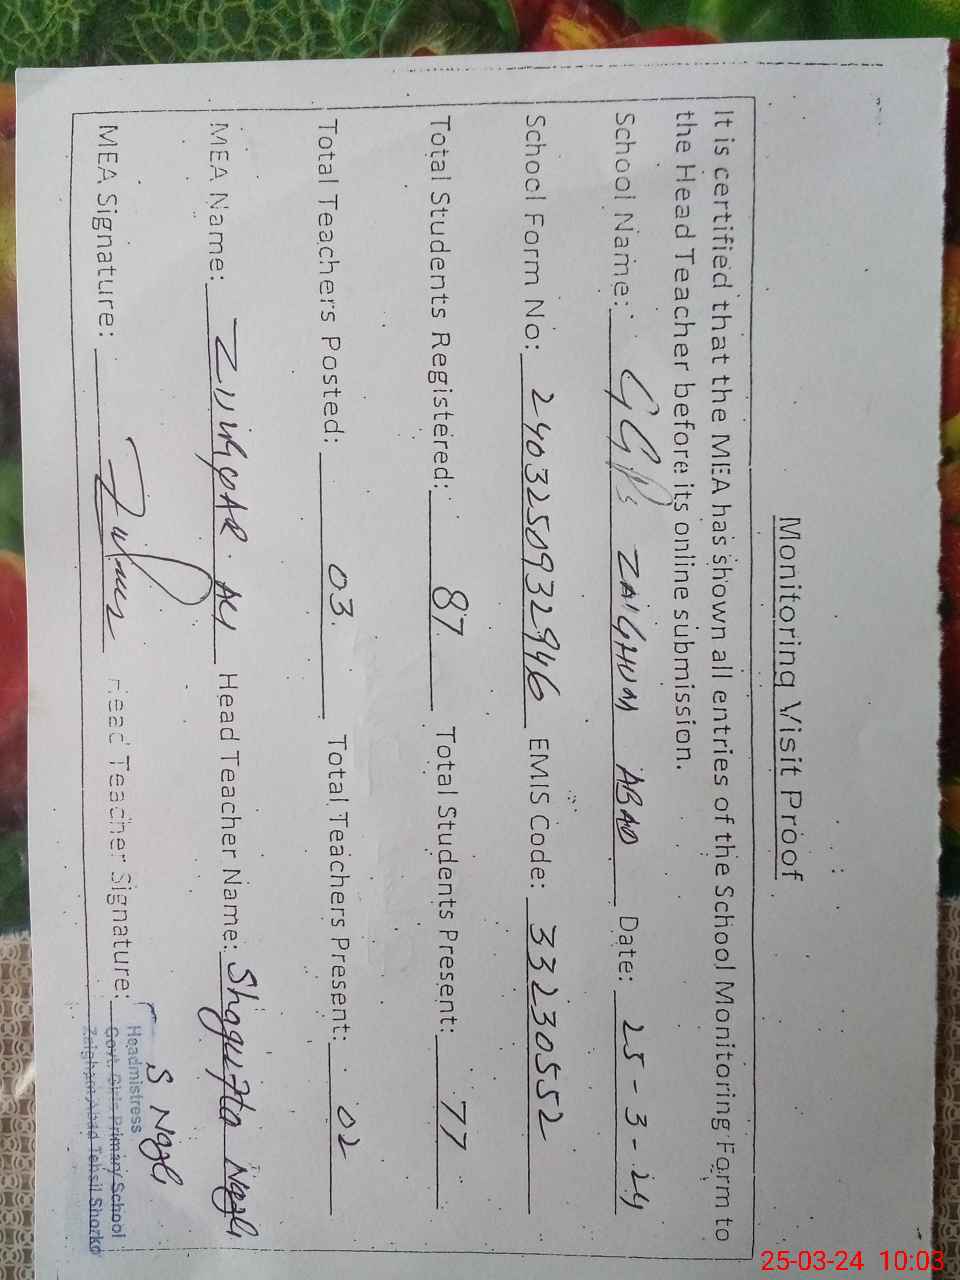 Monitoring Visit Proof
It is certified that the MEA has shown all entries of the School Monitoring Form to
the Head Teacher before its online submission.
School Name: GGPS ZAIGHUM ABAD Date: 25-3-24
School Form No: 2403250932946 EMIS Code: 33230552
Total Students Registered: 87 Total Students Present: 77
Total Teachers Posted: 03 Total Teachers Present: 02
MEA Name: ZULFIQAR ALI Head Teacher Name: Shagufta Nazli
MEA Signature: Head Teacher Signature: S Nazli
Headmistress
Govt. Girls Primary School
Zaigham Abad Tehsil Shorko
25-03-24 10:03